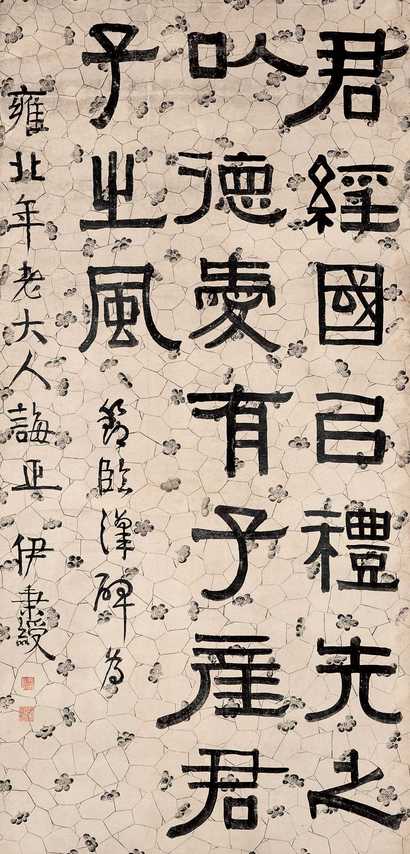 君經國以禮先之
以德爱有子產君
子之風
節臨漢碑為
雍北年老大人誨正 伊秉綬